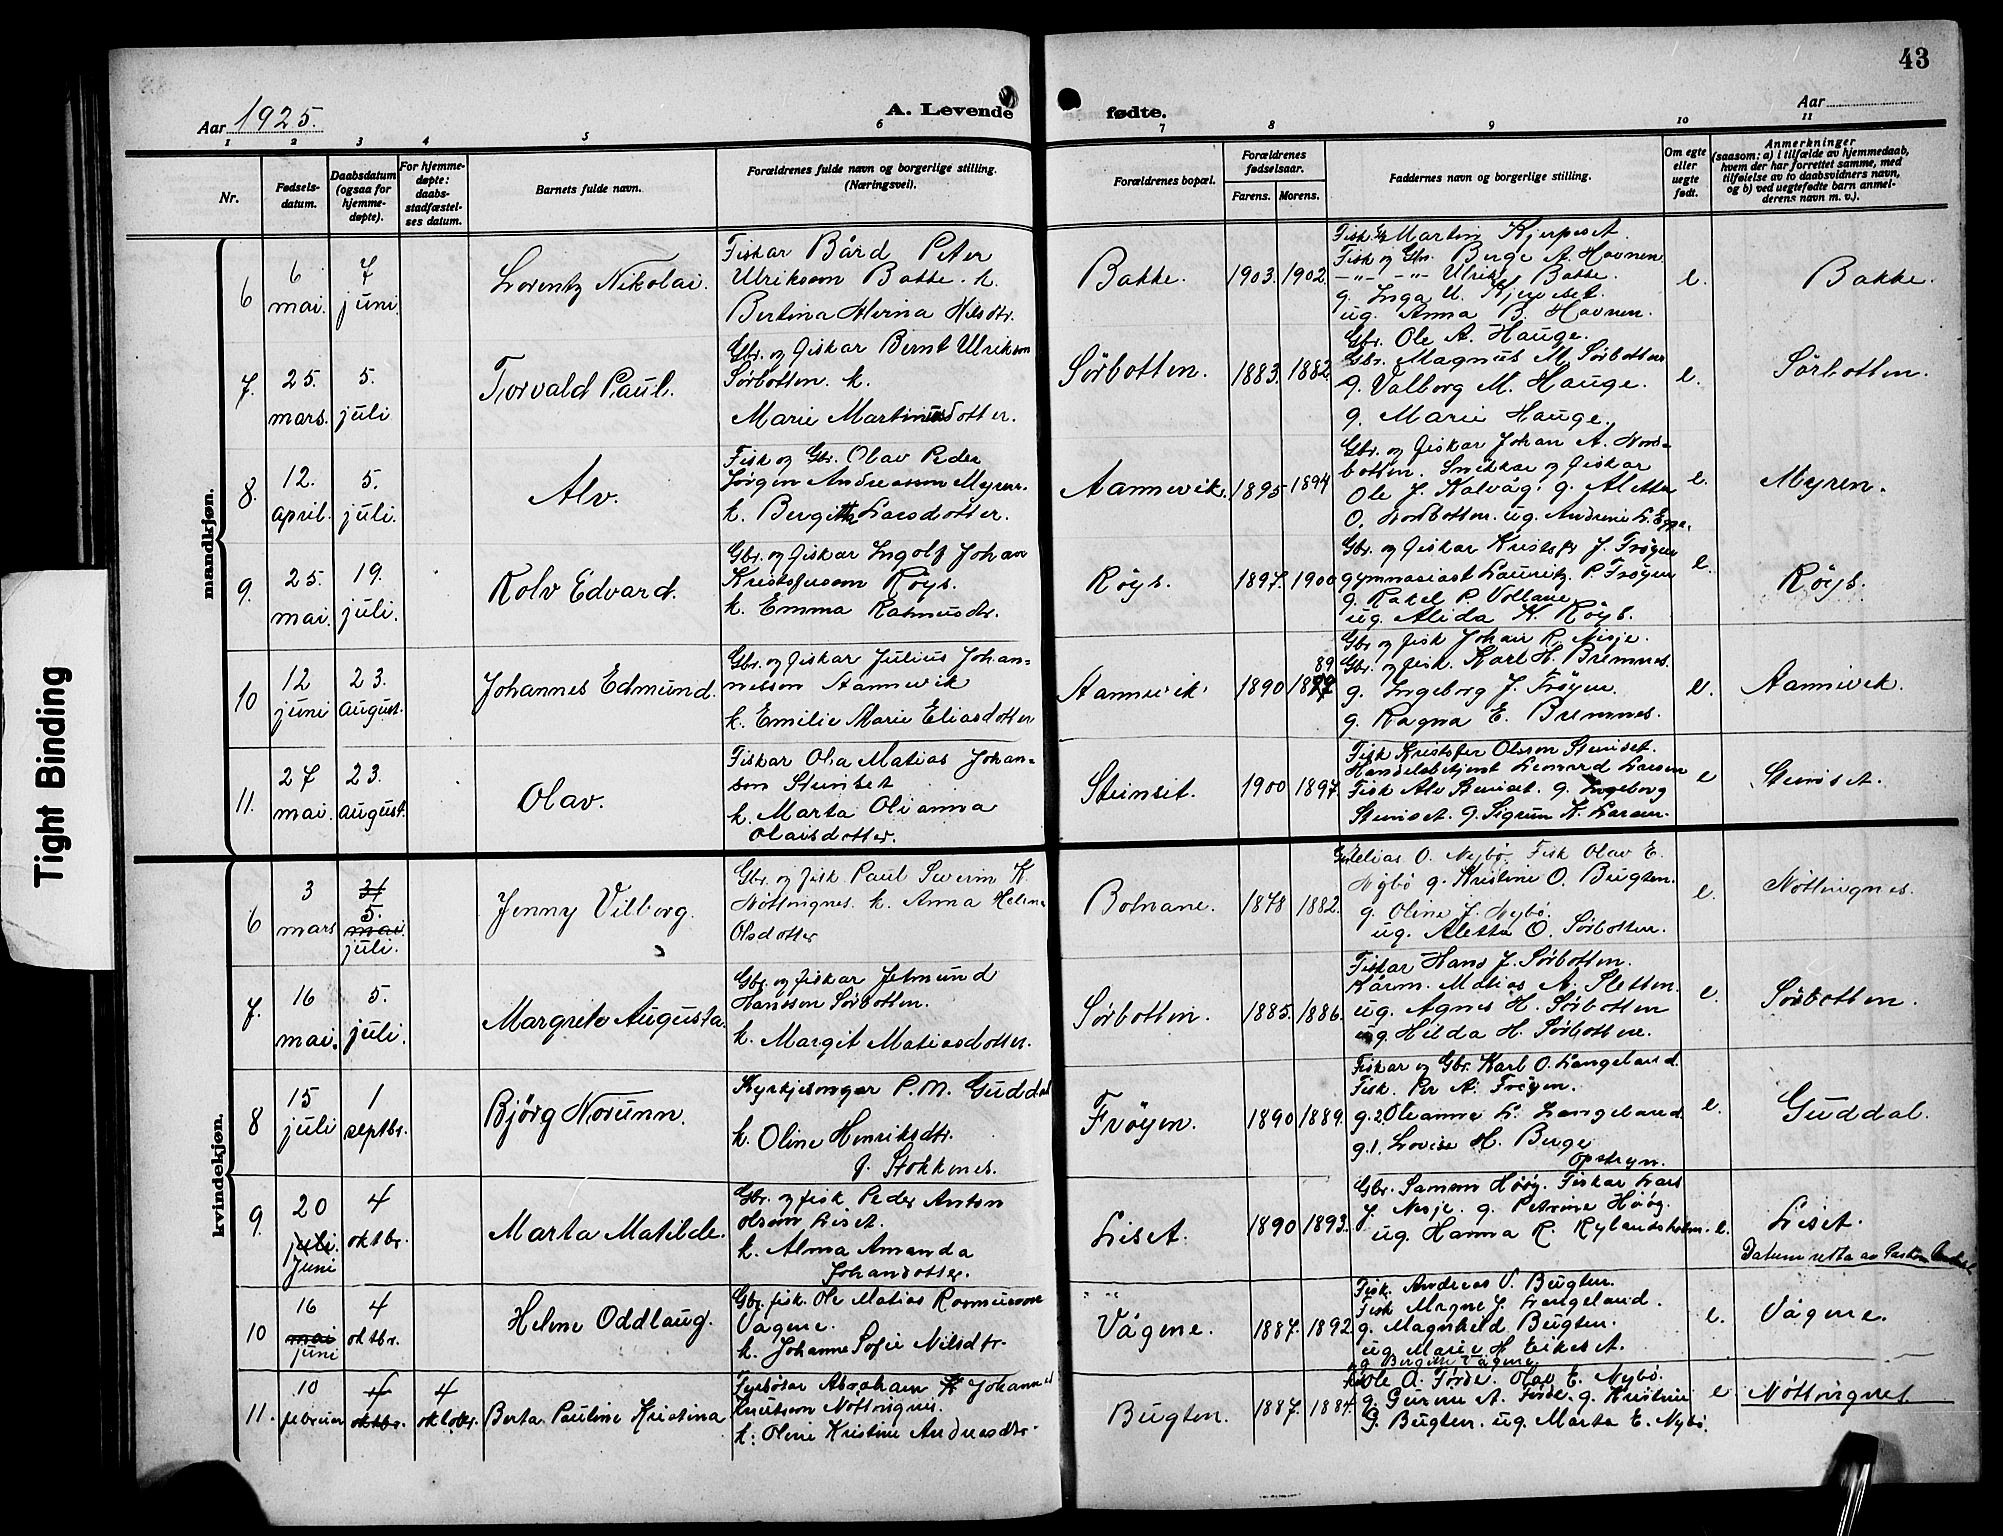 43
Aar 1925.
A. Levende fødte.
Aar
1 2 3 4 5 6 7 8 9 10 11
Nr.
Fødselsdatum.
Daabsdatum (ogsaa for hjemmedøpte).
For hjemmedøpte: daabsstadfæstelses datum.
Barnets fulde navn.
Forældrenes fulde navn og borgerlige stilling. (Næringsvei).
Forældrenes bopæl.
Forældrenes fødselsaar.
Farens. Morens.
Faddernes navn og borgerlige stilling.
Om egte eller uegte født.
Anmerkninger
(saasom: a) i tilfælde av hjemmedaab, hvem der har forrettet samme, med tilføielse av to daabsvidners navn, og b) ved uegtefødte barn anmelderens navn m. v.).
Tight Binding
mandkjøn.
6 6 mai. 7 juni. Lorentz Nikolai.
Fiskar Bård Peter
Ulriksson Bakke. k.
Bertina Nilsdtr.
Bakke. 1903. 1902
Martin Kjerpeset.
Fisk og Gbr. Berge A. Havnen
Ulrik Bakke.
g. Inga U. Kjerpeset.
ug. Anna B. Havnen.
e. Bakke.
7. 25. mars. 5. juli Torvald Paul.
Gbr. og fiskar Bernt Ulriksson
Sørbotten. k.
Marie Martinusdotter.
Sørbotten. 1883. 1882
Gbr. Ole A. Hauge.
Gbr. Magnus M. Sørbotten
g. Valborg M. Hauge.
g. Marie Hauge.
e. Sørbotten.
8. 12. april. 5. juli. Alv.
Fisk og Gbr. Olav Peder
Jørgen Andreasson Myren.
k. Bergitta Larsdotter.
Aannevik. 1895 1894
Gbr. og fiskar Johan A. Nord-
botten. Snikkar og fiskar
Ole J. Kalvåg. g. Aletta
O. Nordbotten. ug. Andrine L.
e. Myren.
9. 25. mai. 19. juli. Kolv Edvard.
Gbr. og fiskar Ingolf Johan
Kristofersson Røys.
k. Emma Rasmusdtr.
Røys. 1897. 1900
Gbr. og fiskar Kristofer J. Frøyen
gymnasiast Lauritz P. Frøyen
g. Rakel P.
ug. Alida K. Røys.
e. Røys.
10 12 juni 23. august. Johannes Edmund.
Gbr. og fiskar Julius Johan-
nesson Aannevik
k. Emilie Marie Eliasdotter
Aannevik. 1890 89
Gbr. og fisk Johan R. Nesje.
Gbr. og fisk. Karl H. Bremnes.
g. Ingeborg J. Frøyen.
g. Ragna E. Bremnes.
e. Aannevik.
11. 27 mai. 23. august. Olav.
Fiskar Ola Matias Johan-
son Steinset
k. Marta Olianna
Olaisdotter.
Steinset. 1900 1897.
Fisk Kristofer Olsson Steinset.
Handelsbetjent Lenard Larsen
Fisk Alv Steinset. g. Ingeborg
Steinset. g. Sigrun K. Larsen.
e Steinset.
kvindekjøn.
6 3 mars 31 mai. 5. juli. Jenny Vilborg.
Gbr. og fisk Paul Severin K.
Nøttingnes. k. Anna Helene
Olsdotter
Botnane. 1878 1882.
Gbr. Elias O. Nybø. Fisk Olav E.
Nybø g. Kristine O. Bugten.
g. Oline J. Nybø.
ug. Aletta O. Sørbotten.
e. Nøttingnes.
7. 16 mai. 5. juli. Margrete Augusta.
Gbr. og fiskar Jetmund
Hansson Sørbotten.
k. Margit Matiasdotter.
Sørbotten. 1885. 1886.
Fiskar Hans J. Sørbotten.
Matias A. Sletten.
ug. Agnes H. Sørbotten
ug. Hilda H. Sørbotten.
e. Sørbotten.
8 15 juli 1 septbr. Bjørg Norunn.
Kyrkjesongar P. M. Guddal
k. Oline Henriksdtr.
f. Stokkenes.
Frøyen. 1890 1889.
Fiskar og Gbr. Karl O. Langeland.
Fisk. Per A. Frøyen.
g.2. Oleanna L. Langeland
g.1. Lovise H. Berge
Opstryn.
e. Guddal.
9. 20 juli. juni 4 oktbr. Marta Matilde.
Gbr. og fisk Peder Anton
Olsson Liset.
k. Alma Amanda
Johansdotter.
Liset. 1890 1893.
Gbr. Samson Høög. Fiskar Lars
J. Nesje. g. Petrine Høög.
ug. Hanna R. Rylandsholm.
e. Liset.
Datum retta av
10 16 mai juni 4 oktbr. Helene Oddlaug.
Gbr. fisk. Ole Matias Rasmusson
Vågene.
k. Johanne Sofie Nilsdtr.
Vågene. 1887. 1892
Fisk. Andreas V. Bugten.
Fisk Magne J. Langeland.
g. Magnhild Bugten.
ug. Marie H. Eikeset.
g. Bergitte Vågene.
e. Vågene.
11. 10 februar 4 oktbr. 4 oktober Berta Pauline Kristina
Fyrbøtar Abraham Johannes
Knutson Nøttingnes.
k. Oline Kristine Andreasdtr.
Bugten. 1887. 1884.
Ole A. Førde. Olav E. Nybø.
g. Gurine A. Førde. g. Kristine
G. Bugten. ug. Marta E. Nybø.
e Nøttingnes.